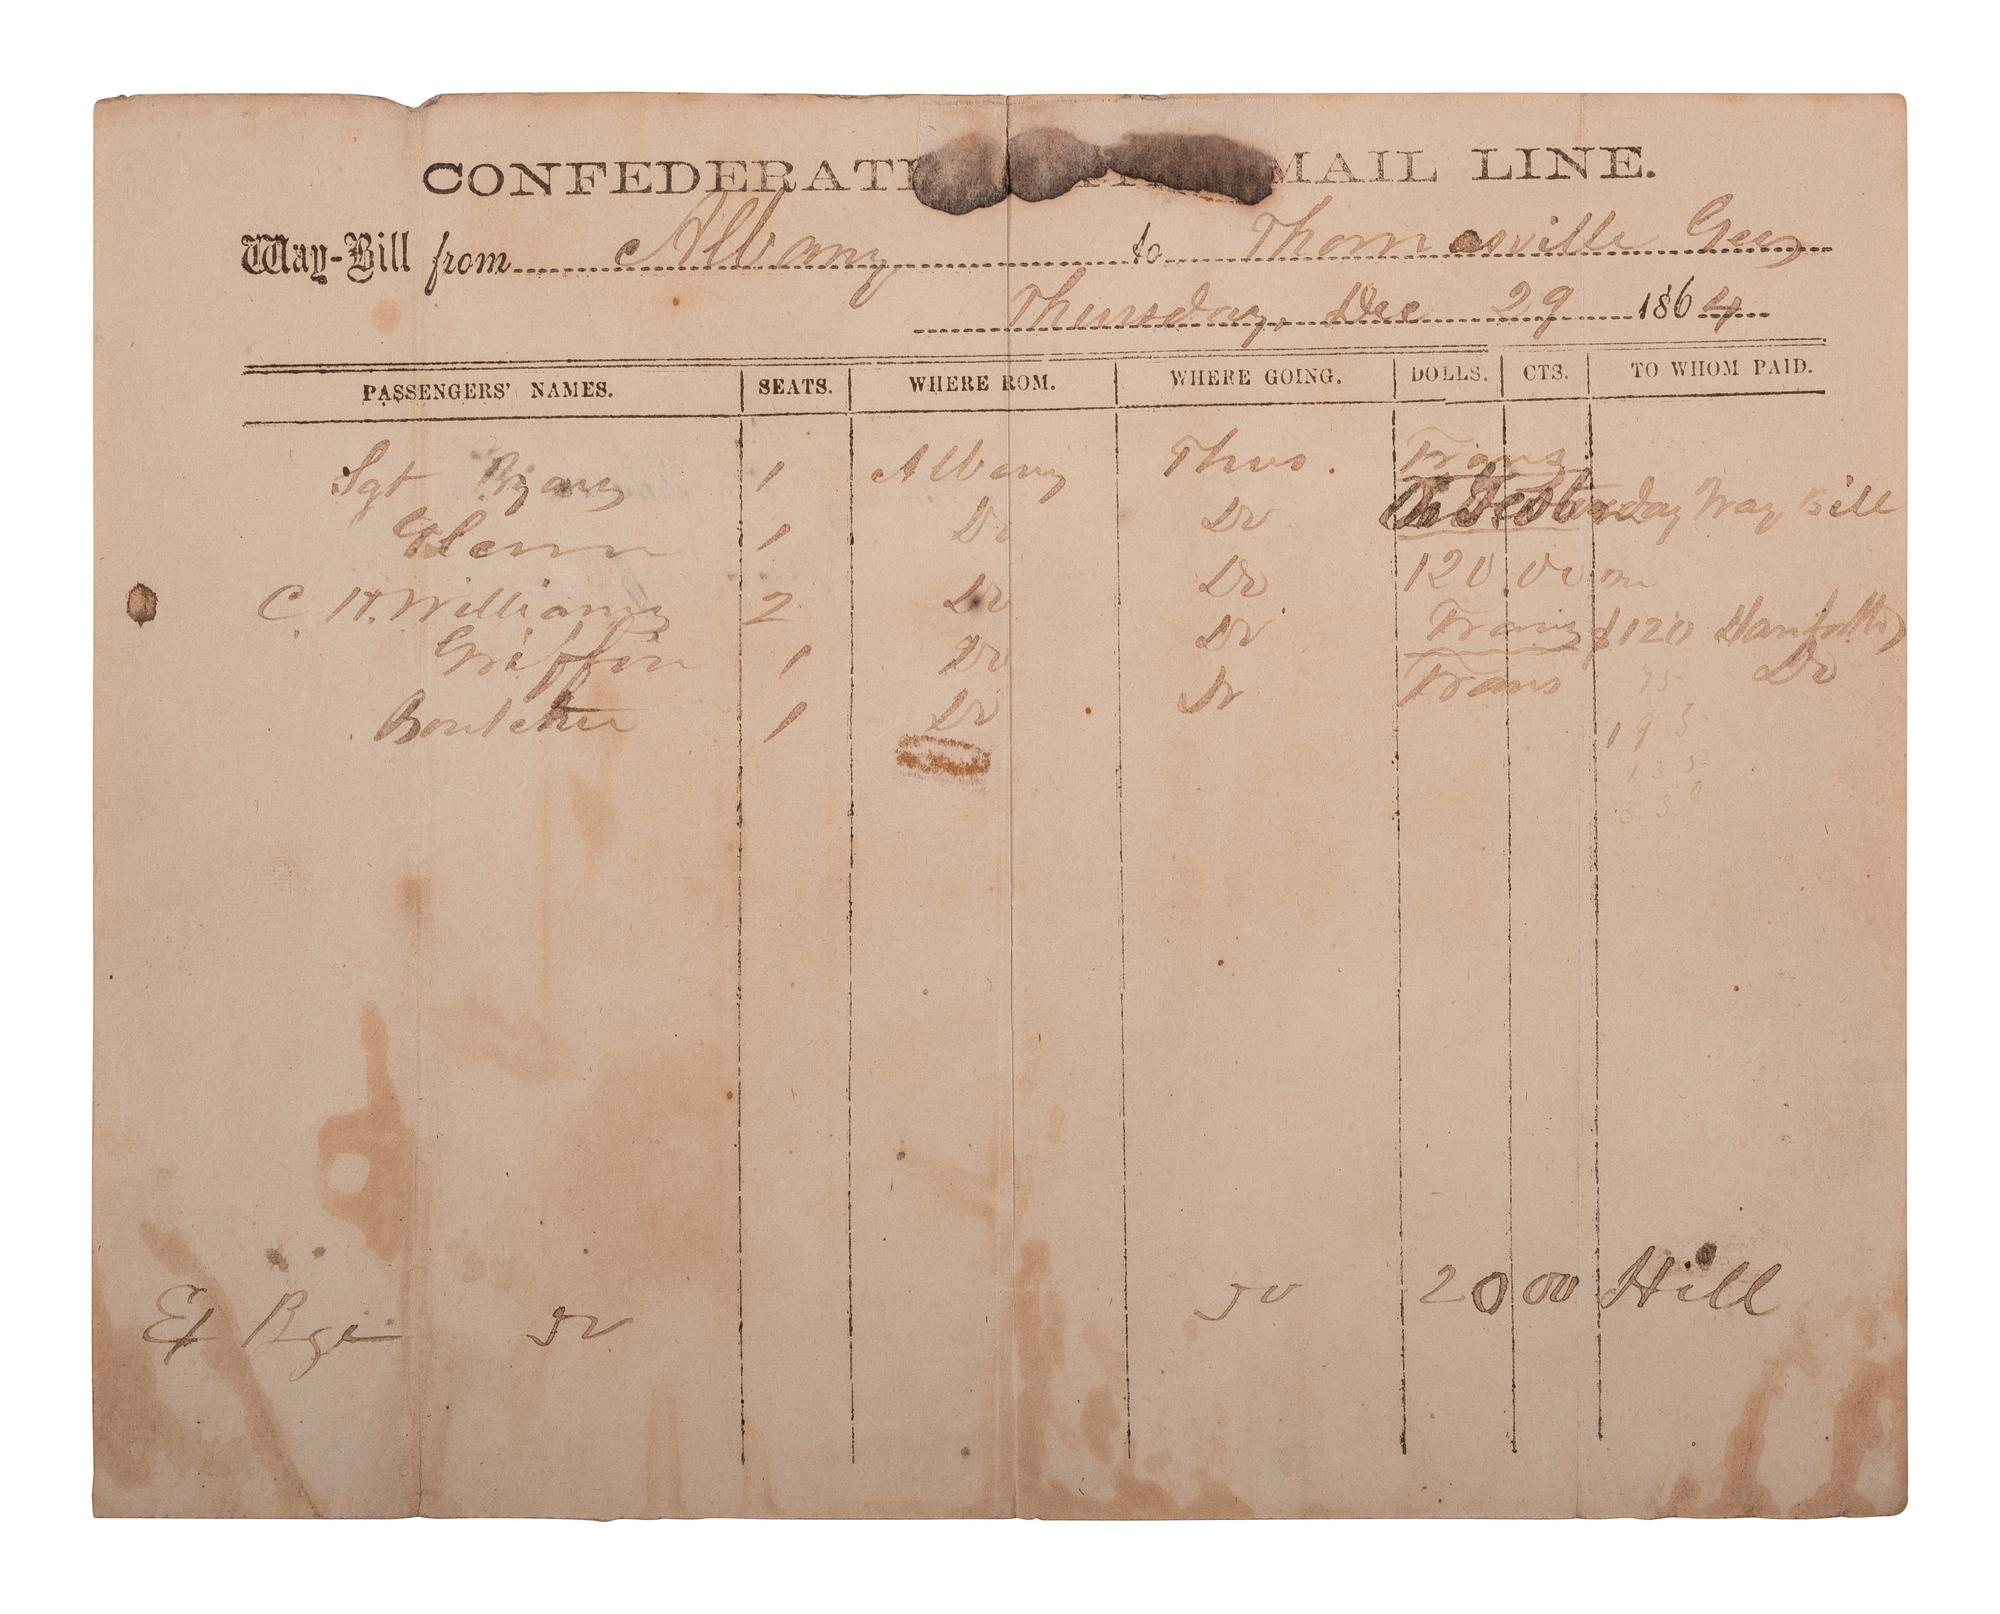 CONFEDERAT MAIL LINE.
Way-Bill from Albany to Thomasville Geo
Thursday, Dec 29 1864
PASSENGERS' NAMES. SEATS. WHERE ROM. WHERE GOING. DOLLS. CTS. TO WHOM PAID.
Sgt Ryan 1 Albany Thos. Trans
Glenn 1 Do Do Yesterday Way Bill
C. H. Williams 2 Do Do 120.00
Griffin 1 Do Do Trans $120
Boutcher 1 Do Do Trans Do
75
193
135
330
Ex 20 00 Hill